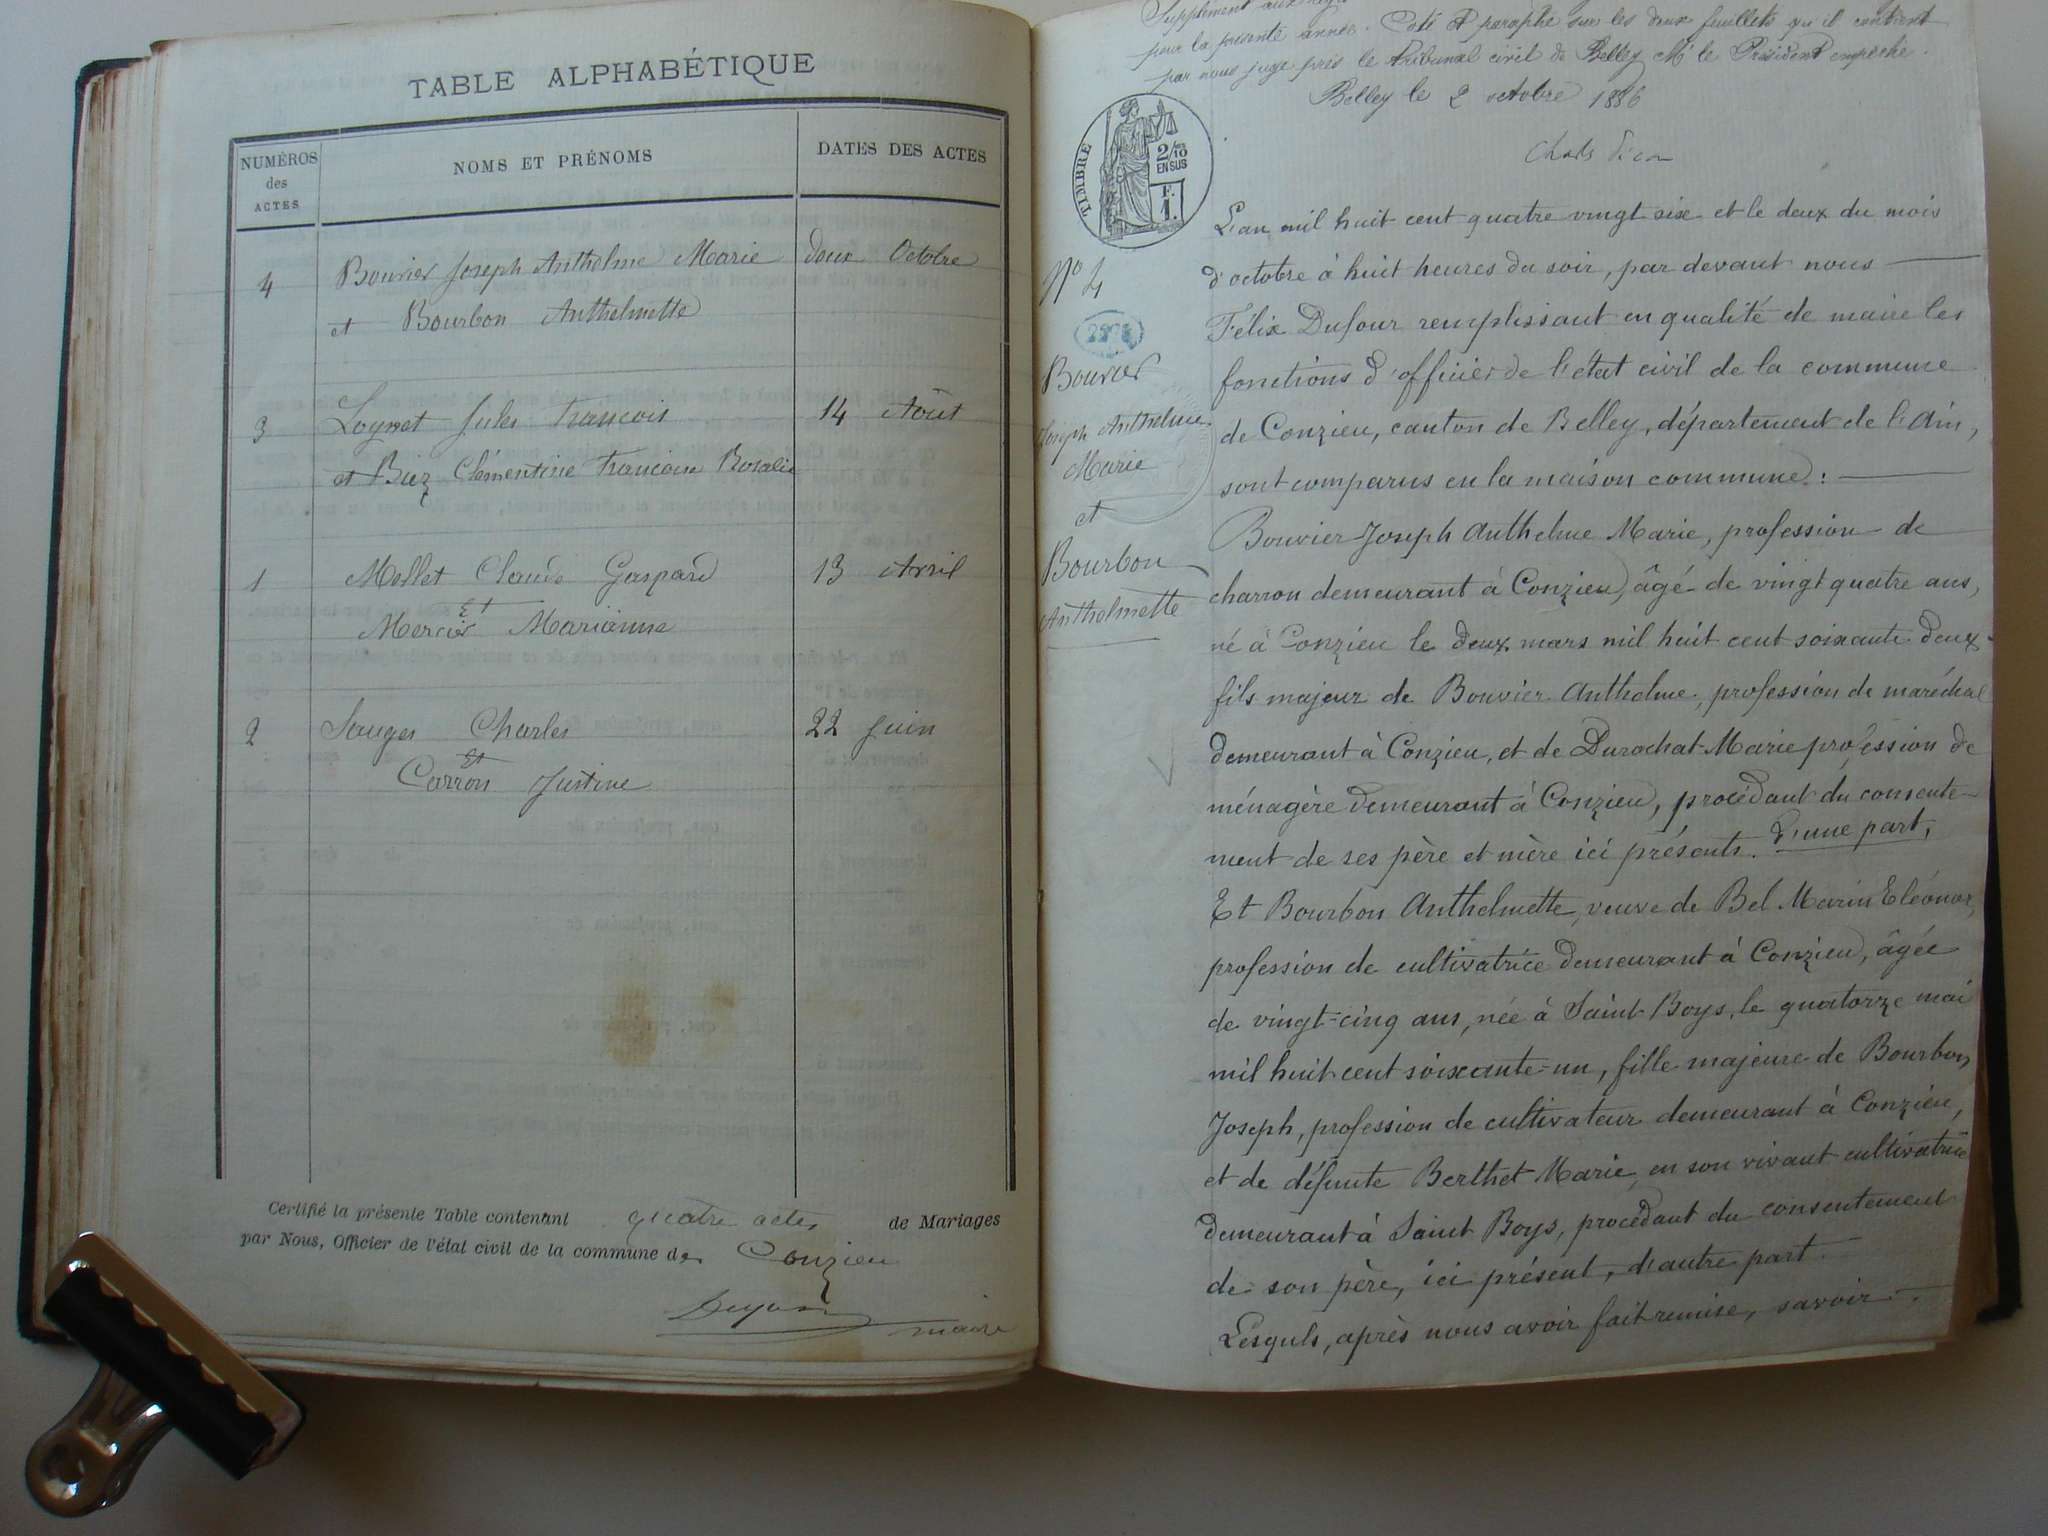 TABLE ALPHABÉTIQUE
NUMÉROS des ACTES
NOMS ET PRÉNOMS
DATES DES ACTES
4 Bouvier Joseph Anthelme Marie deux Octobre
et Bourbon Anthelmette
3 Loynet Jules François 14 Août
et Biez Clémentine Françoise Rosalie
1 Mollet Claude Gaspard 13 Avril
Et
Mercier Marianne
2 Sauges Charles 22 Juin
Et
Carron Justine
Certifié la présente Table contenant quatre actes de Mariages
par Nous, Officier de l'état civil de la commune de Conzieu
maire
Supplément aux
pour la présente année. Coté et paraphé sur les deux feuillets qu'il contient
par nous juge près le Tribunal civil de Belley Mr le Président empêché.
Belley le 2 octobre 1886
TIMBRE
2/10
EN SUS
F.
1.
No 4
Bouvier
Joseph Anthelme
Marie
et
Bourbon
Anthelmette
L'an mil huit cent quatre vingt six et le deux du mois
d'octobre à huit heures du soir, par devant nous
Félix Dufour remplissant en qualité de maire les
fonctions d'officier de l'état civil de la commune
de Conzieu, canton de Belley, département de l'Ain,
sont comparus en la maison commune :
Bouvier Joseph Anthelme Marie, profession de
charron demeurant à Conzieu, âgé de vingt quatre ans,
né à Conzieu le deux mars mil huit cent soixante deux
fils majeur de Bouvier Anthelme, profession de maréchal
demeurant à Conzieu, et de Durochat Marie profession de
ménagère demeurant à Conzieu, procédant du consente-
ment de ses père et mère ici présents. D'une part,
Et Bourbon Anthelmette, veuve de Bel Marin Eléonor,
profession de cultivatrice demeurant à Conzieu, âgée
de vingt-cinq ans, née à Saint Boys, le quatorze mai
mil huit cent soixante-un, fille majeure de Bourbon,
Joseph, profession de cultivateur demeurant à Conzieu,
et de défunte Berthet Marie, en son vivant cultivatrice
demeurant à Saint Boys, procédant du consentement
de son père, ici présent, d'autre part.
Lesquls, après nous avoir fait remise, savoir :